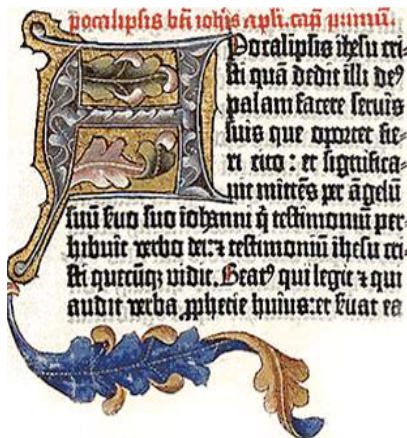 Apocalipsis bti iohis apli. cap primu.
Apocalipsis ihesu cri-
sti quā dedit illi deꝰ
palam facere seruis
suis que oportet fie-
ri cito : et significa-
uit mittēs per āgelū
suū suo iohanni q̄ testimoniū per-
hibuit verbo dei: ⁊ testimoniū ihesu cri-
sti quecūqꝫ vidit. Beatꝰ qui legit ⁊ qui
audit verba ꝓphetie huius: et suat ea